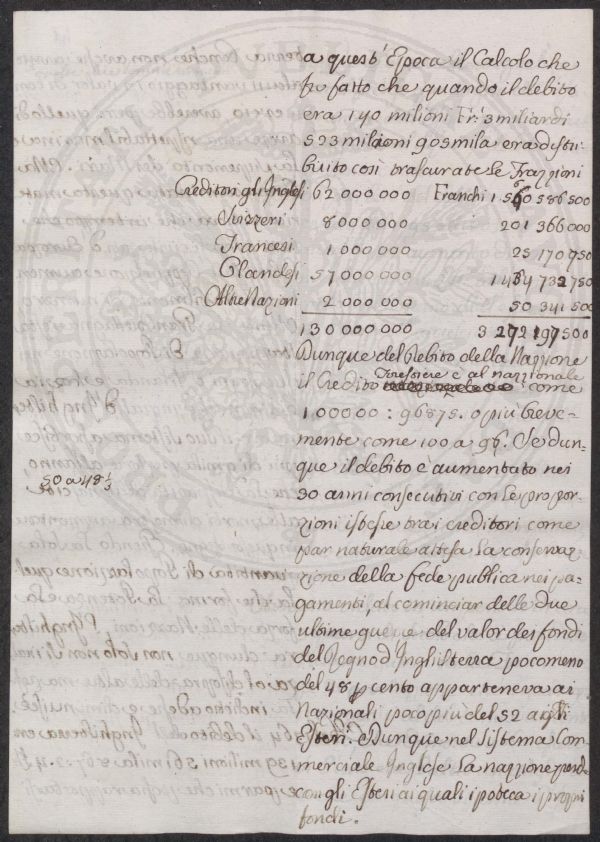 a quest' Epoca il Calcolo che
fu fatto che quando il debito
era 140 milioni Fr. 3 miliardi
523 milioni 905 mila era distri-
buito così trascurate le Frazzioni
Creditori gl'Inglesi 62 000 000 Franchi 1 560 386 500
Svizzeri 8 000 000 201 366 000
Francesi 1 000 000 25 170 750
Olandesi 57 000 000 1 434 732 750
Altre Nazioni 2 000 000 50 341 500
130 000 000 3 272 197 500
Dunque del Debito della Nazzione
il Credito Foressiere è al nazzionale come
100000 : 96875. o più breve-
mente come 100 a 96. Se dun-
que il debito è aumentato nei
50 a 48 1/3
30 anni consecutivi con le propor-
zioni istesse tra i creditori come
par naturale attesa la conservaz-
zione della fede publica nei pa-
gamenti, al cominciar delle due
ultime guerre del valor dei fondi
del Regno d'Inghilterra poco meno
del 48 p cento apparteneva ai
Nazionali poco più del 52 agli
Esteri. Dunque nel sistema Com-
merciale Inglese la nazzione perde
con gli Esteri ai quali ipoteca i proprj
fondi.